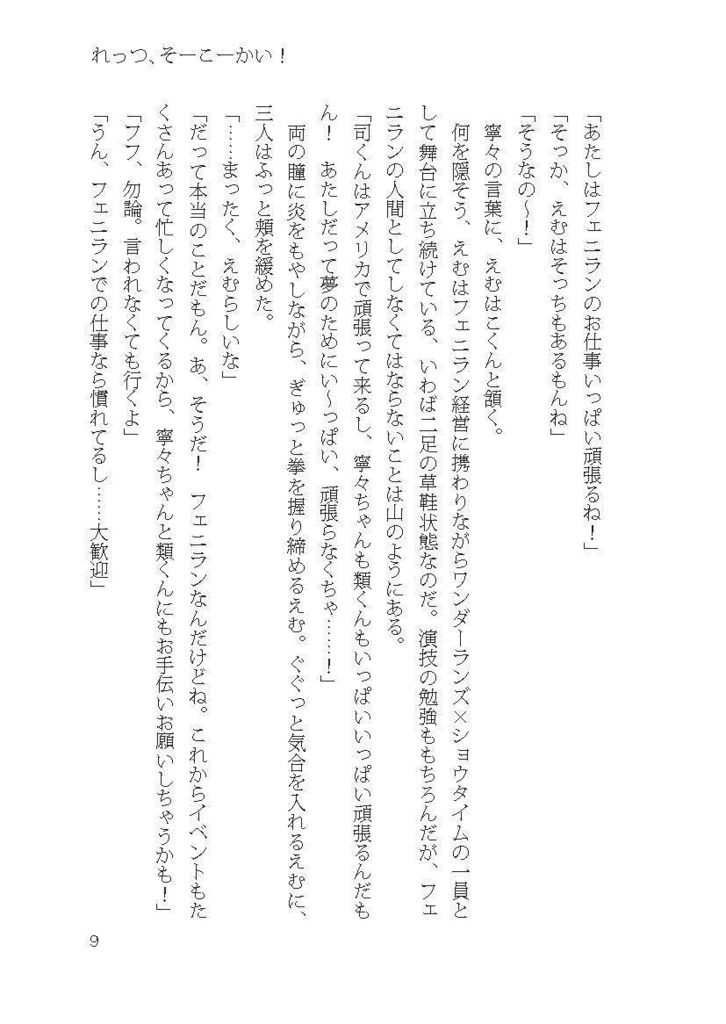 れっつ、そーこーかい！
「あたしはフェニランのお仕事いっぱい頑張るね！」
「そっか、えむはそっちもあるもんね」
「そうなの～！」
寧々の言葉に、えむはこくんと頷く。
何を隠そう、えむはフェニラン経営に携わりながらワンダーランズ×ショウタイムの一員と
して舞台に立ち続けている、いわば二足の草鞋状態なのだ。演技の勉強ももちろんだが、フェ
ニランの人間としてしなくてはならないことは山のようにある。
「司くんはアメリカで頑張って来るし、寧々ちゃんも類くんもいっぱいいっぱい頑張るんだも
ん！　あたしだって夢のためにい～っぱい、頑張らなくちゃ……！」
両の瞳に炎をもやしながら、ぎゅっと拳を握り締めるえむ。ぐぐっと気合を入れるえむに、
三人はふっと頬を緩めた。
「……まったく、えむらしいな」
「だって本当のことだもん。あ、そうだ！　フェニランなんだけどね。これからイベントもた
くさんあって忙しくなってくるから、寧々ちゃんと類くんにもお手伝いお願いしちゃうかも！」
「フフ、勿論。言われなくても行くよ」
「うん、フェニランでの仕事なら慣れてるし……大歓迎」
9